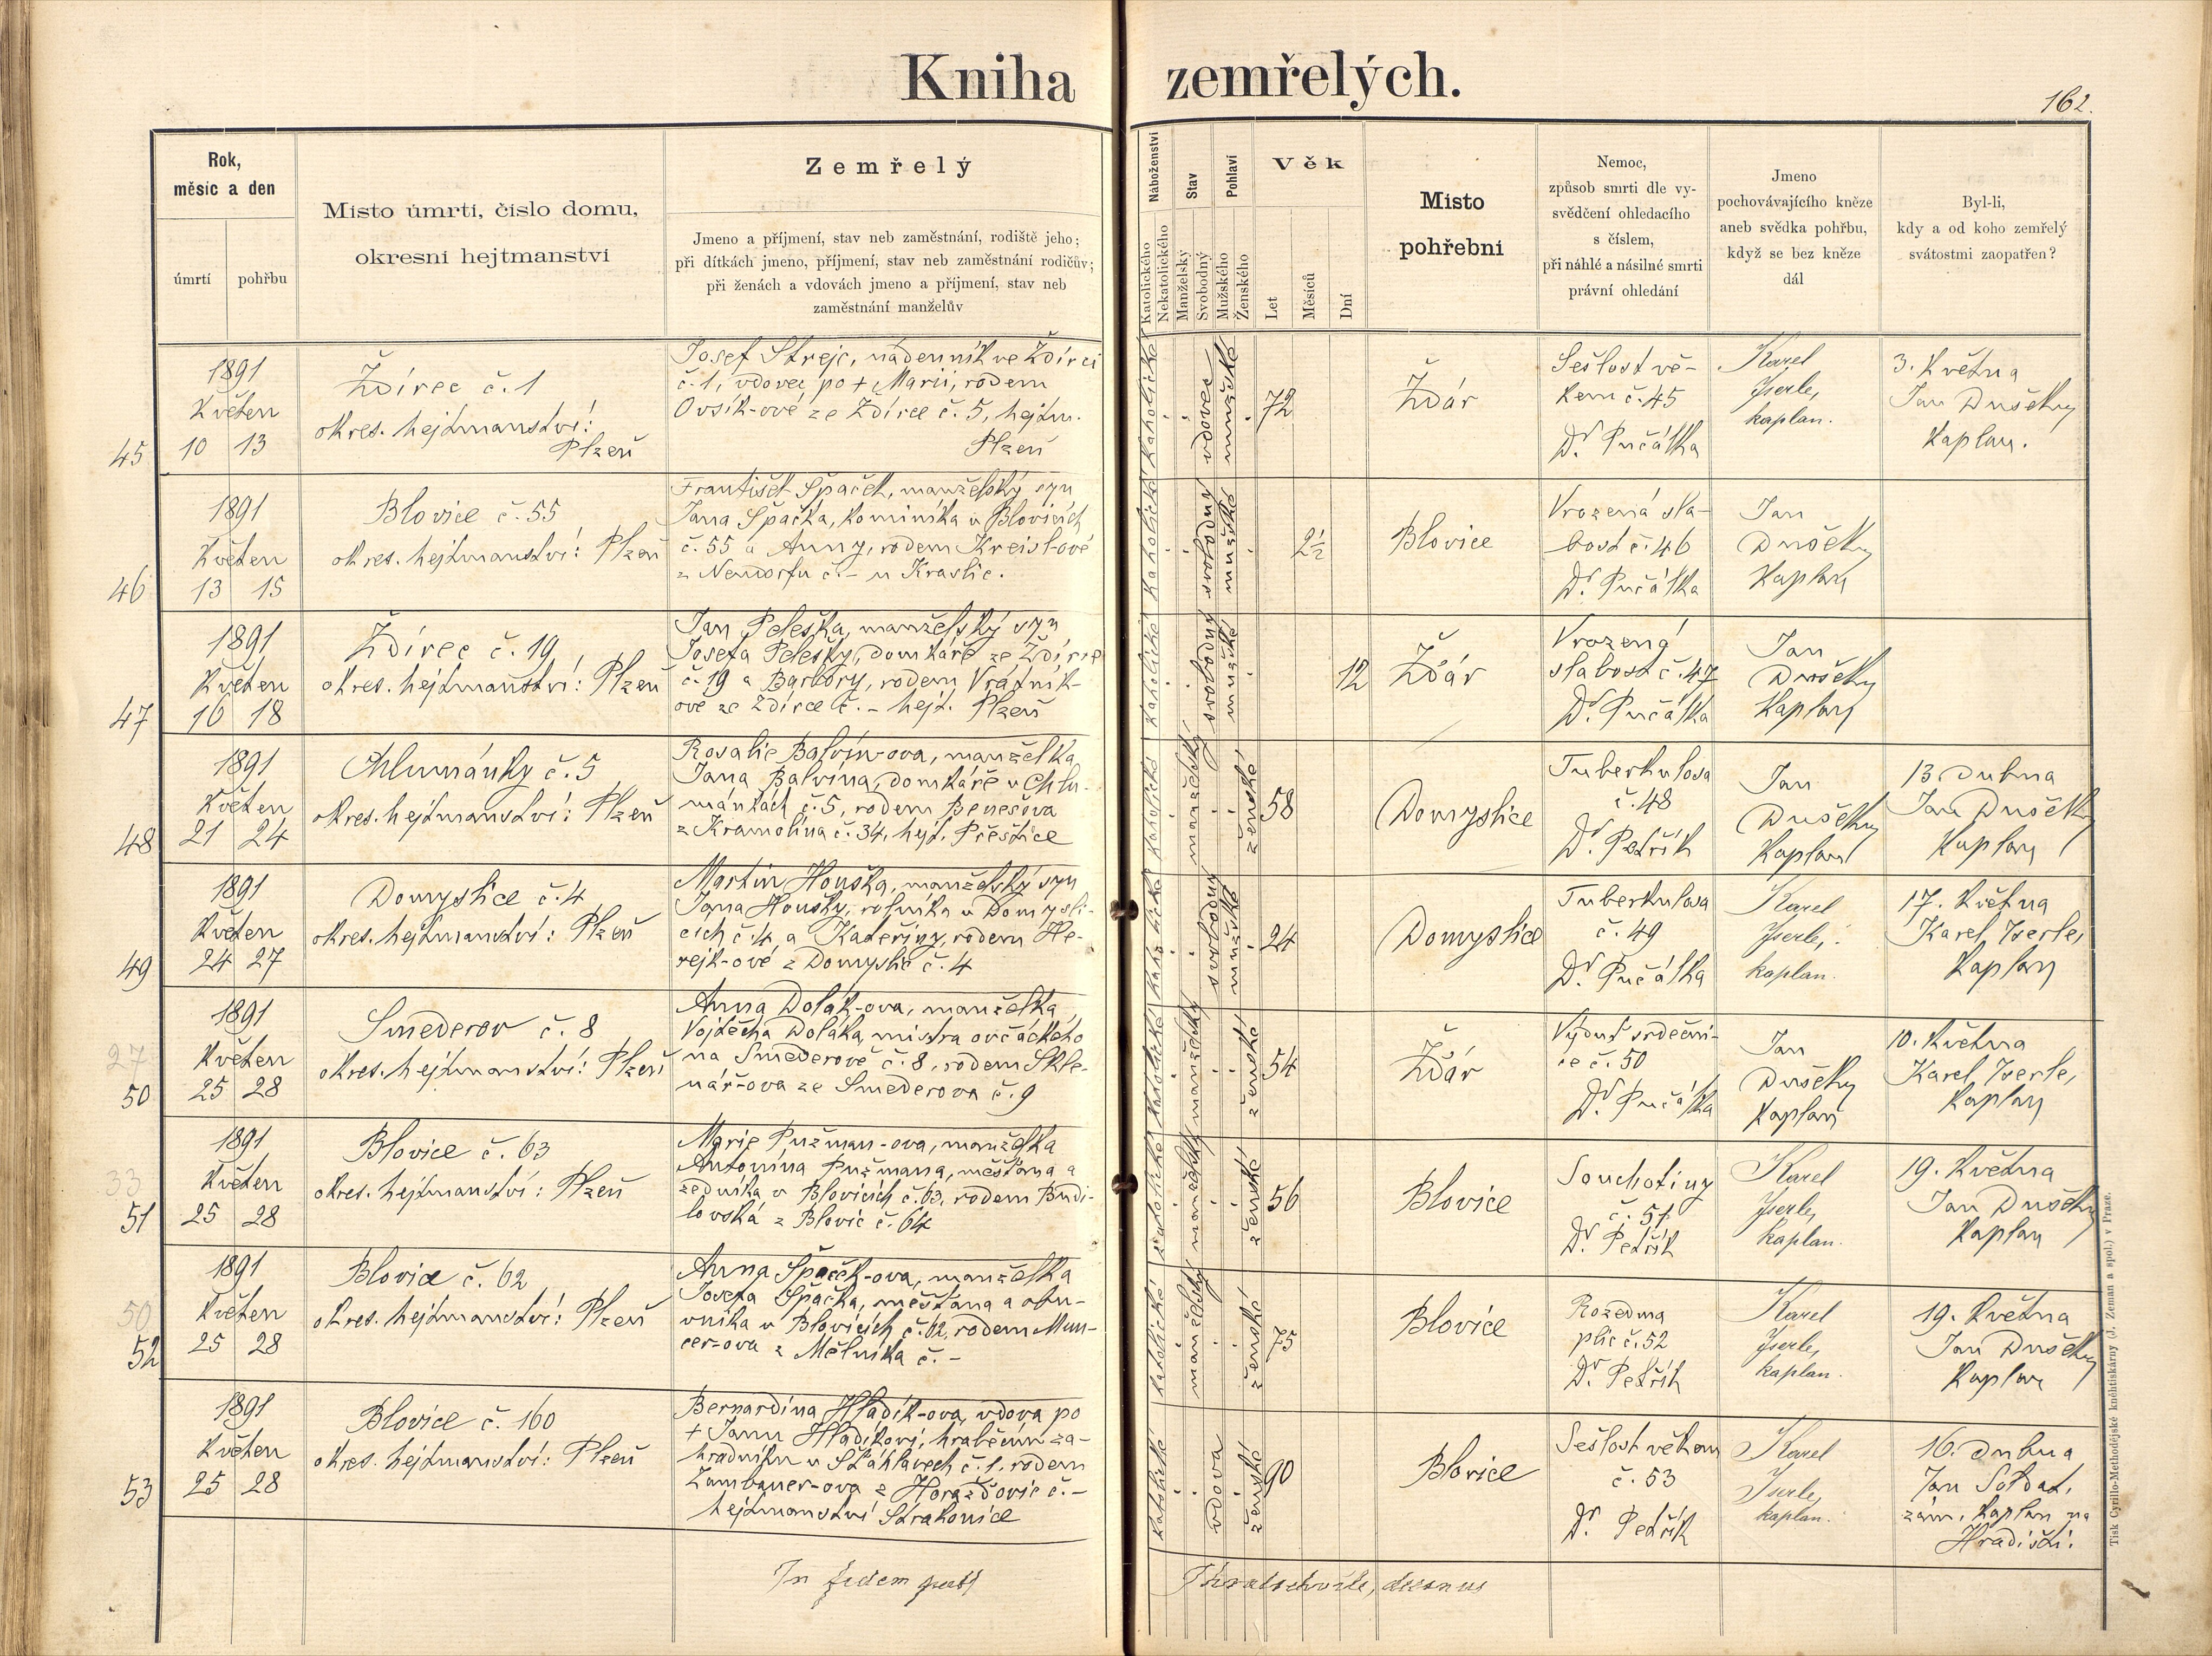 Kniha zemřelých.
162.
Rok,
měsíc a den
úmrtí
pohřbu
Místo úmrtí, číslo domu,
okresní hejtmanství
Zemřelý
Jmeno a příjmení, stav neb zaměstnání, rodiště jeho;
při dítkách jmeno, příjmení, stav neb zaměstnání rodičův;
při ženách a vdovách jmeno a příjmení, stav neb
zaměstnání manželův
Náboženství
Katolického
Nekatolického
Stav
Manželský
Svobodný
Pohlaví
Mužského
Ženského
Věk
Let
Měsíců
Dní
Místo
pohřební
Nemoc,
způsob smrti dle vy-
svědčení ohledacího
s číslem,
při náhlé a násilné smrti
právní ohledání
Jmeno
pochovávajícího kněze
aneb svědka pohřbu,
když se bez kněze
dál
Byl-li,
kdy a od koho zemřelý
svátostmi zaopatřen?
45
1891
Květen
10 13
Ždírec č. 1
okres. hejtmanství:
Plzeň
Josef Strejc, nádenník ve Ždírci
č. 1, vdovec po + Marii, rodem
Ovsík-ové ze Ždírce č. 5, hejtm.
Plzeň
katolické
vdovec
mužské
72
Žďár
Sešlost vě-
kem č. 45
Dr. Pučálka
Karel
Iserle,
kaplan.
3. Května
Jan Dušek
Kaplan.
46
1891
Květen
13 15
Blovice č. 55
okres. hejtmanství: Plzeň
František Špaček, manželský syn
Jana Špačka, kominíka v Blovicích
č. 55 a Anny, rodem Kreisl-ové
z Neudorfu č. - u Kraslic.
katolické
svobodný
mužské
2½
Blovice
Vrozená sla-
bost č. 46
Dr. Pučálka
Jan
Dušek
Kaplan
47
1891
Květen
16 18
Ždírec č. 19
okres. hejtmanství: Plzeň
Jan Peleška, manželský syn
Josefa Pelešky, domkáře ze Ždírce
č. 19 a Barbory, rodem Vrátník-
ové ze Ždírce č. - hejt. Plzeň
katolické
svobodný
mužské
12
Žďár
Vrozená
slabost č. 47
Dr. Pučálka
Jan
Dušek
Kaplan
48
1891
Květen
21 24
Chlumánky č. 5
okres. hejtmanství: Plzeň
Rosalie Balvín-ova, manželka
Jana Balvína, domkáře v Chlu-
mánkách č. 5, rodem Benešova
z Kramolína č. 34, hejt. Přeštice
katolické
manželský
ženské
58
Domyslice
Tuberkulosa
č. 48
Dr. Petřík
Jan
Dušek
Kaplan
13. Dubna
Jan Dušek
Kaplan
49
1891
Květen
24 27
Domyslice č. 4
okres. hejtmanství: Plzeň
Martin Houška, manželský syn
Jana Houšky, rolníka v Domysli-
cích č. 4, a Kateřiny, rodem He-
rejk-ové z Domyslic č. 4
katolické
svobodný
mužské
24
Domyslice
Tuberkulosa
č. 49
Dr. Pučálka
Karel
Iserle,
kaplan.
17. Května
Karel Iserle,
Kaplan
27
50
1891
Květen
25 28
Smederov č. 8
okres. hejtmanství: Plzeň
Anna Dolák-ova, manželka
Vojtěcha Doláka, mistra ovčáckého
na Smederově č. 8, rodem Skle-
nář-ova ze Smederova č. 9
katolické
manželský
ženské
54
Žďár
Výduť srdečni-
ce č. 50
Dr. Pučálka
Jan
Dušek
Kaplan
10. Května
Karel Iserle,
Kaplan
33
51
1891
Květen
25 28
Blovice č. 63
okres. hejtmanství: Plzeň
Marie Pužman-ova, manželka
Antonína Pužmana, měšťana a
zedníka v Blovicích č. 63, rodem Budi-
lovská z Blovic č. 64
katolické
manželský
ženské
56
Blovice
Souchotiny
č. 51
Dr. Petřík
Karel
Iserle,
kaplan.
19. Května
Jan Dušek
Kaplan
50
52
1891
Květen
25 28
Blovice č. 62
okres. hejtmanství: Plzeň
Anna Špaček-ova, manželka
Josefa Špačka, měšťana a obu-
vníka v Blovicích č. 62, rodem Mun-
cer-ova z Mělníka č. -
katolické
manželský
ženské
75
Blovice
Rozedma
plic č. 52
Dr. Petřík
Karel
Iserle,
kaplan.
19. Května
Jan Dušek
Kaplan
53
1891
Květen
25 28
Blovice č. 160
okres. hejtmanství: Plzeň
Bernardina Hladík-ova, vdova po
+ Janu Hladíkovi, hraběcím za-
hradníku v Šťáhlavech č. 1, rodem
Zambauer-ova z Horažďovic č. -
hejtmanství Strakonice
katolické
vdova
ženské
90
Blovice
Sešlost věkem
č. 53
Dr. Petřík
Karel
Iserle,
kaplan.
16. Dubna
Jan Soldat,
zám. Kaplan na
Hradišti.
In fidem
Tisk Cyrillo-Methodějské knihtiskárny (J. Zeman a spol.) v Praze.